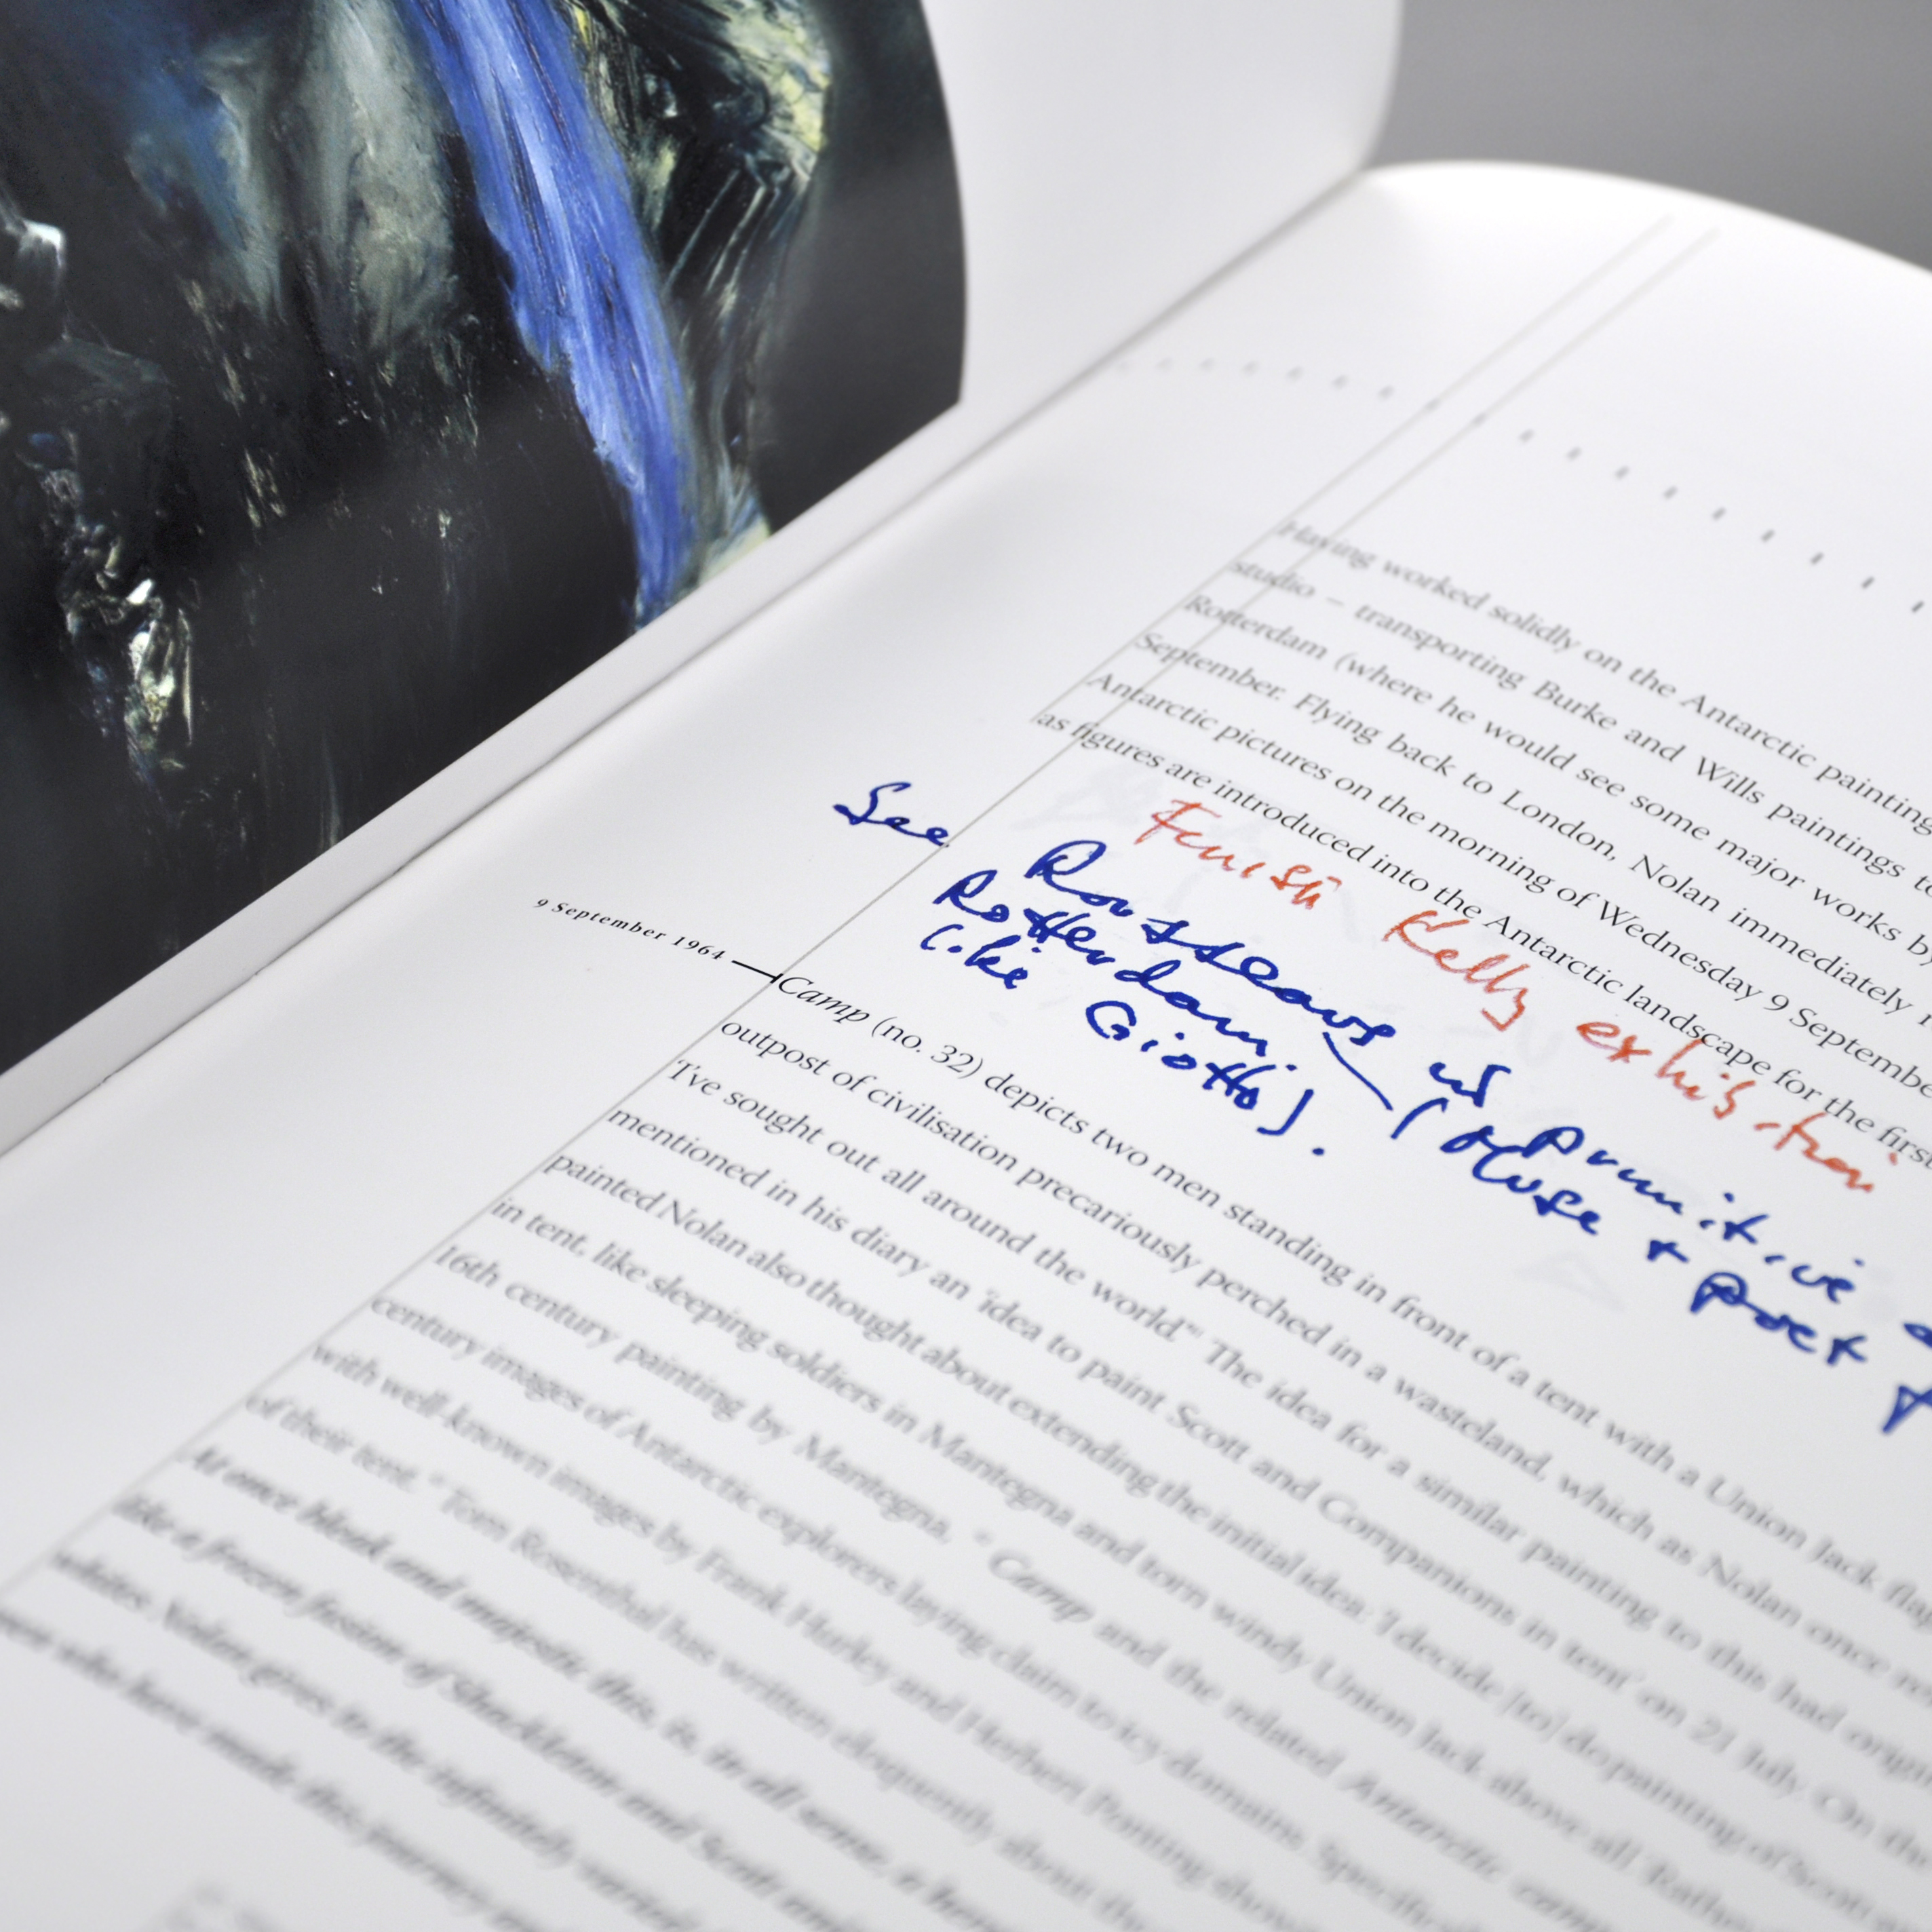 Having worked solidly on the Antarctic painting
studio – transporting Burke and Wills paintings to
Rotterdam (where he would see some major works by
September. Flying back to London, Nolan immediately
Antarctic pictures on the morning of Wednesday 9 Septembe
as figures are introduced into the Antarctic landscape for the first
Finish Kelly exhibition
See Rousseaus in
Rotterdam (obtuse + poet
like Giotto).
primitive
9 September 1964
Camp (no. 32) depicts two men standing in front of a tent with a Union Jack flag
outpost of civilisation precariously perched in a wasteland, which as Nolan once
'I've sought out all around the world.' The idea for a similar painting to this had origin
mentioned in his diary an 'idea to paint Scott and Companions in tent' on 21 July. On the
painted Nolan also thought about extending the initial idea: 'I decide [to] do painting of Scott
in tent, like sleeping soldiers in Mantegna and torn windy Union Jack above all.' Rathe
16th century painting by Mantegna, Camp and the related Antarctic
century images of Antarctic explorers laying claim to icy domains. Specific
with well-known images by Frank Hurley and Herbert Ponting
of their tent. Tom Rosenthal has written eloquently about the
At once bleak and majestic this, is, in all sense, a
like a frozen fusion of Shackleton and Scott
whites Nolan gives to the infinitely
who have made this journey